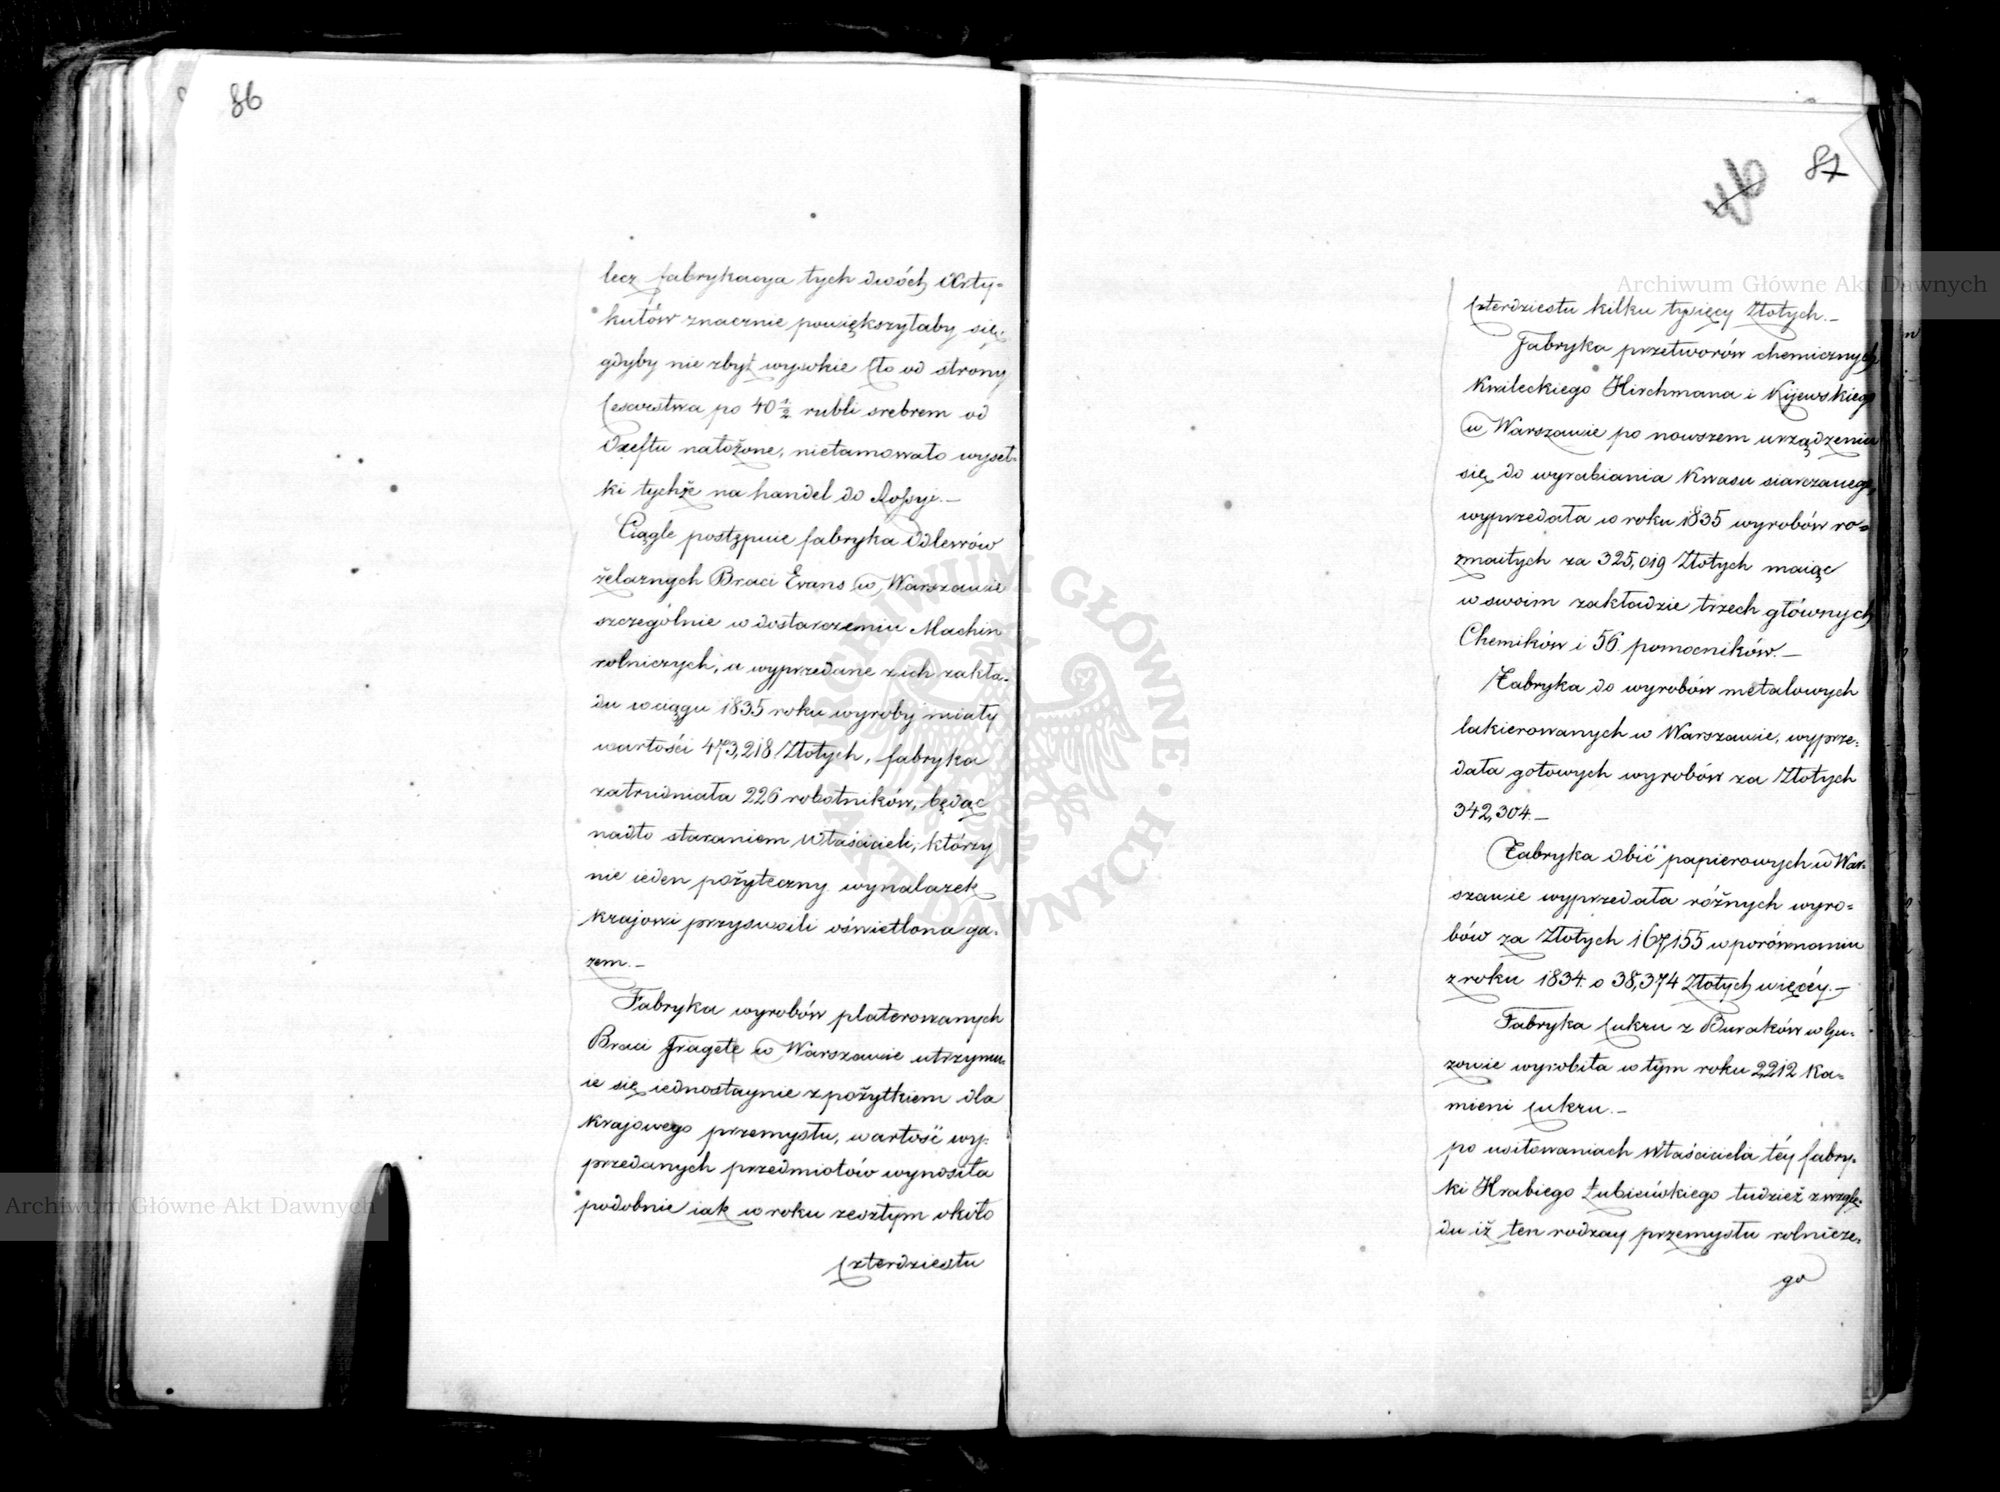 86
lecz fabrykacya tych dwóch Arty=
kułów znacznie powiększyłaby się,
gdyby nie zbyt wysokie Cło od strony
Cesarstwa po 40 1/2 rubli srebrem od
Oxeftu nałożone, nietamowało wysył=
ki tychże na handel do Rossyi.—
Ciągle postępuie fabryka Odlewów
żelaznych Braci Evans w Warszawie
szczególnie w dostarczeniu Machin
rolniczych, a wyprzedane z ich zakła=
du w ciągu 1835 roku wyroby miały
wartości 473,218 Złotych, fabryka
zatrudniała 226 robotników, będąc
nadto staraniem Właścicieli, którzy
nie ieden pożyteczny wynalazek
krajowi przyswoili oświetlona ga=
zem.—
Fabryka wyrobów platerowanych
Braci Fragete w Warszawie utrzymu=
ie się iednostaynie z pożytkiem dla
krajowego przemysłu, wartość wy=
przedanych przedmiotów wynosiła
podobnie iak w roku zeszłym około
Czterdziestu
46 87
Czterdziestu kilku tysięcy Złotych.—
Fabryka przetworów chemicznych
Kwileckiego Hirchmana i Kijewskiego
w Warszawie po nowszem urządzeniu
się do wyrabiania Kwasu siarczanego,
wyprzedała w roku 1835 wyrobów ro=
zmaitych za 325,019 Złotych maiąc
w swoim zakładzie trzech głównych
Chemików i 56 pomocników.—
Fabryka do wyrobów metalowych
lakierowanych w Warszawie, wyprze=
dała gotowych wyrobów za Złotych
342,304.—
Fabryka obić papierowych w War=
szawie wyprzedała różnych wyro=
bów za Złotych 167,155 w porównaniu
z roku 1834 o 38,374 Złotych więcéy.—
Fabryka Cukru z Buraków w Gu=
zowie wyrobiła w tym roku 2,212 Ka=
mieni Cukru.—
po usiłowaniach Właściciela téy fabry=
ki Hrabiego Łubieńskiego tudzież z wzglę=
du iż ten rodzay przemysłu rolnicze=
go
Archiwum Główne Akt Dawnych
Archiwum Główne Akt Dawnych
ARCHIWUM GŁÓWNE AKT DAWNYCH